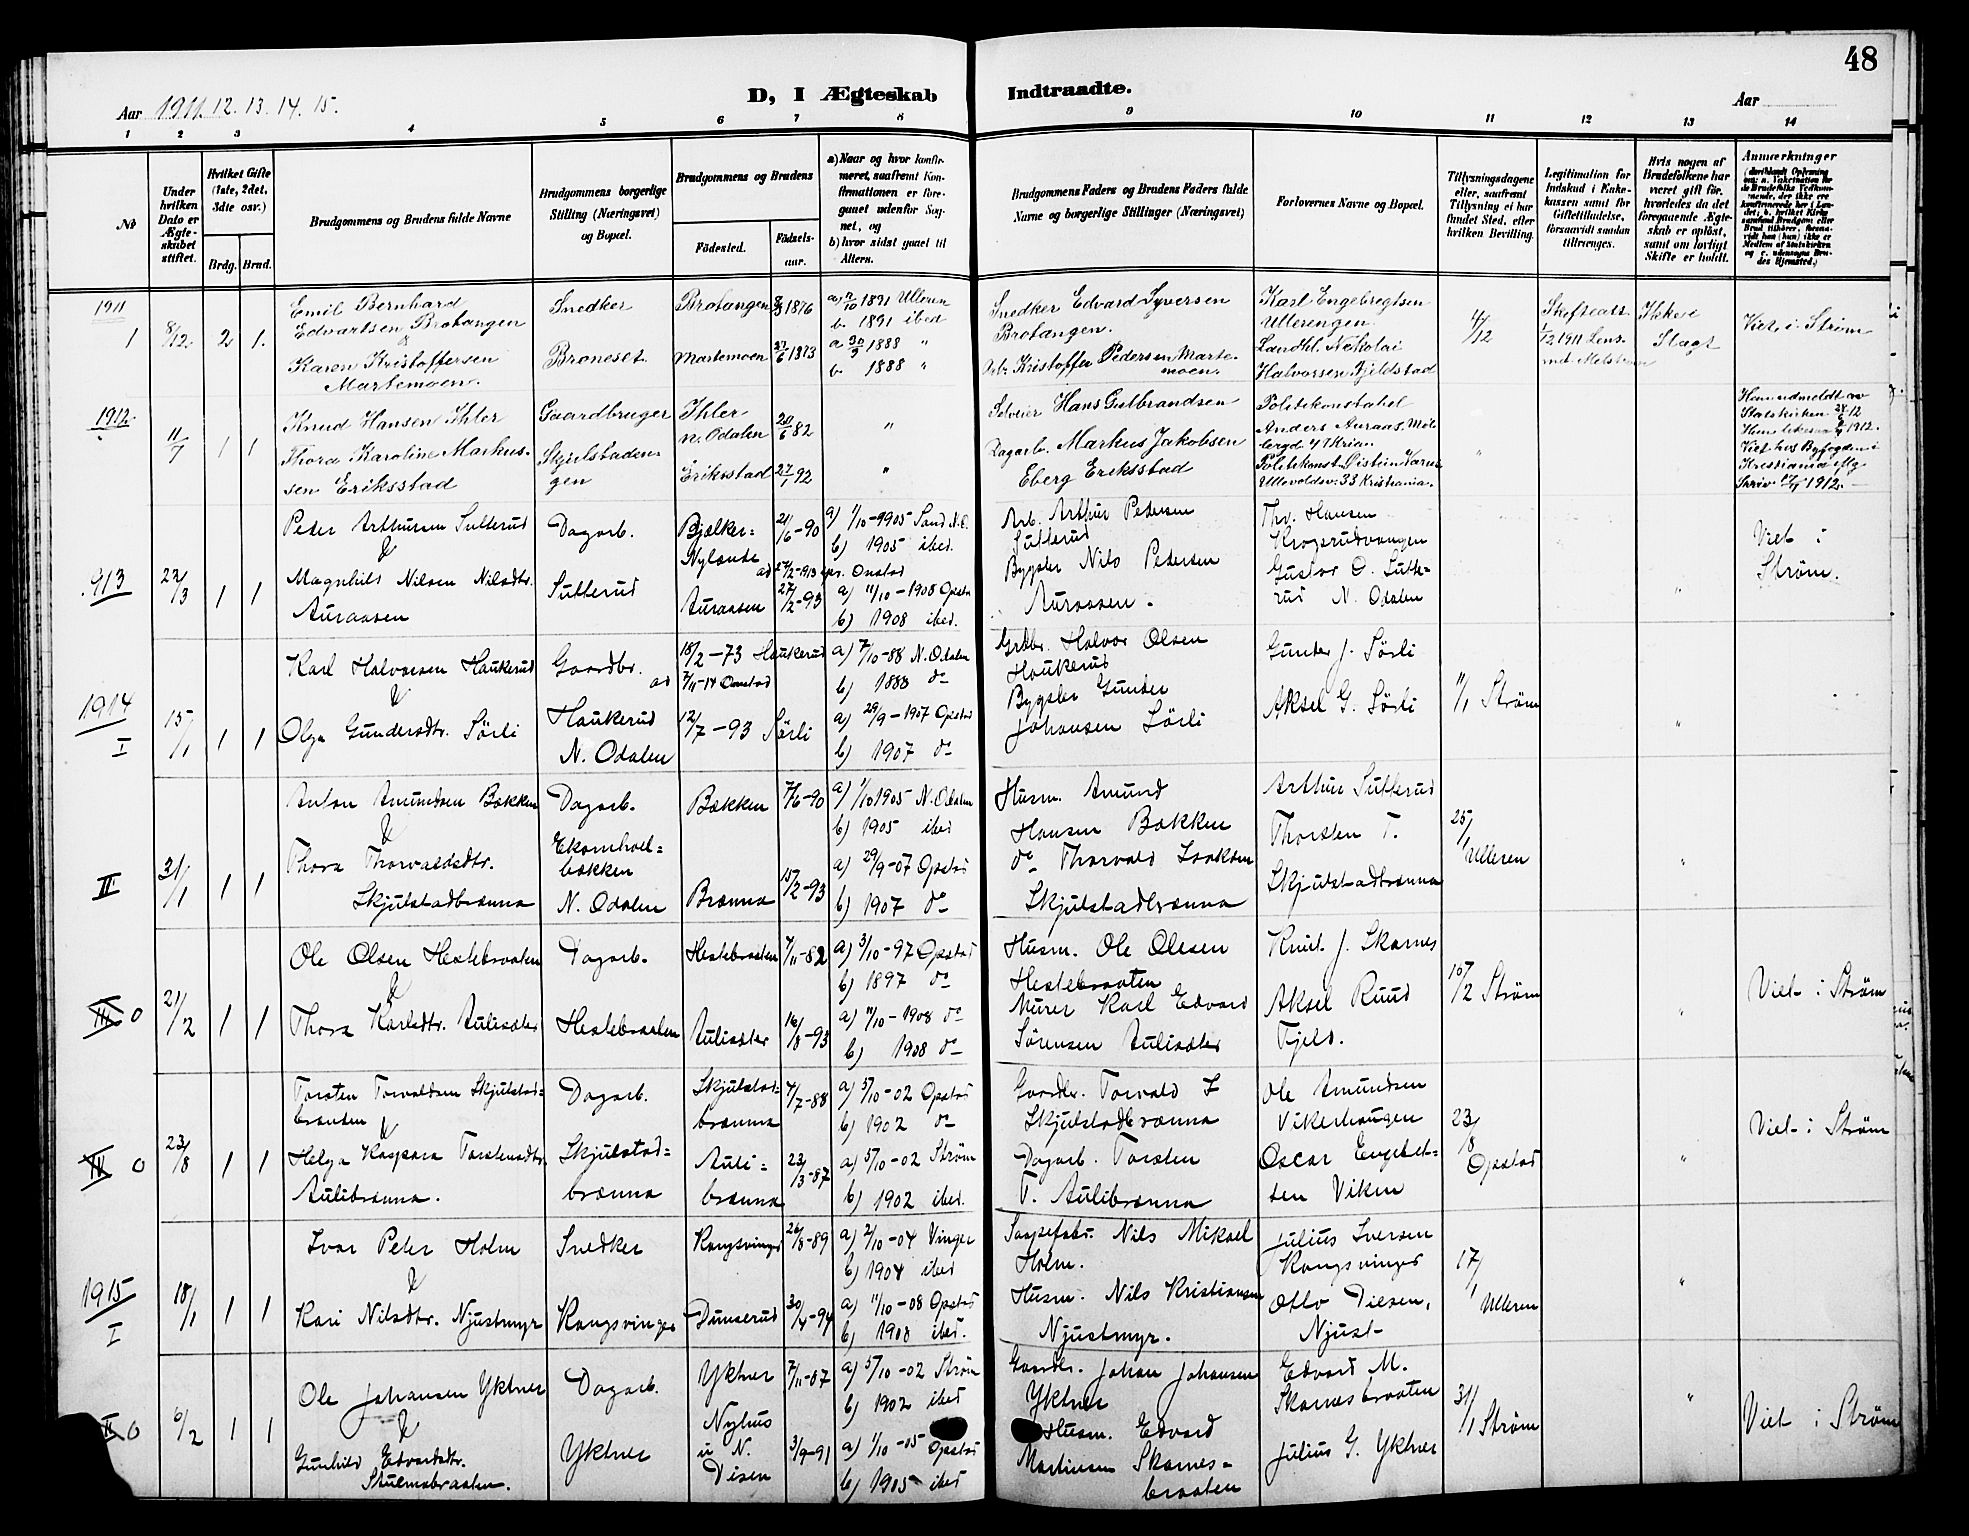 48
Aar 1911. 12. 13. 14. 15.
D, I Ægteskab Indtraadte.
Aar
1 2 3 4 5 6 7 8 9 10 11 12 13 14
No
Under hvilken Dato er Ægteskabet stiftet.
Hvilket Gifte (1ste, 2det, 3die osv.)
Brdg. Brud.
Brudgommens og Brudens fulde Navne
Brudgommens borgerlige Stilling (Næringsvei) og Bopæl.
Brudgommens og Brudens
Födested.
Födselsaar.
a) Naar og hvor konfirmeret, saafremt Konfirmationen er foregaaet udenfor Sognet, og
b) hvor sidst gaaet til Alters.
Brudgommens Faders og Brudens Faders fulde Navne og borgerlige Stillinger (Næringsvei)
Forlovernes Navne og Bopæl.
Tillysningsdagene eller, saafremt Tillysning ei har fundet Sted, efter hvilken Bevilling.
Legitimation for Indskud i Enkekassen samt for Giftetilladelse, forsaavidt saadan tiltrænges.
Hvis nogen af Brudefolkene har været gift før, hvorledes da det foregaaende Ægteskab er opløst, samt om lovligt Skifte er holdt.
Anmærkninger
1911
1 8/12 2 1.
Emil Bernhard
Edvartsen Brotangen
&
Karen Kristoffersen
Martemoen.
Snedker
Broneset.
Brotangen 1876
Martemoen 27/6 1873
a) 1891 Ulleren
b. 1891 ibed
a 30/9 1888 "
b. 1888 "
Snedker Edvard Syversen
Brotangen.
Arb. Kristoffer Pedersen Martemoen.
Karl Engebregtsen
Ullerengen.
Landhl. Nikolai
Halvorsen Fjeldstad
4/12
Skifteatt.
1/12 1911 Lens-
Ikke i
Slegt
Viet i Strøm
1912.
11/7 1 1
Knud Hansen Ihler
Thora Karoline Markus-
sen Eriksstad
Gaardbruger
Skjulstaden-
gen
Ihler
N. Odalen 20/6 82
Eriksstad 27/1 92
"
"
Selveier Hans Gulbrandsen
Dagarb. Markus Jakobsen
Eberg Eriksstad
Politikonstabel
Anders Auraas, Møl-
Politikonst. Øistein
Ullevoldsv. 33 Kristiania.
"
Statskirken
Viet hos Byfogden i
Kristiania
1912.
913
22/3 1 1
Peder Arthursen Sutterud
&
Magnhild Nilsen Nilsdtr.
Auraasen
Dagarb.
Sutterud
Bjelker=
Nylante 21/6-90
Auraasen 27/2-93
a) 1/10-1905 Sand N.O.
b) 1905 ibed.
a) 11/10-1908 Opstad
b) 1908 ibed.
Arb. Arthur Pedersen
Sutterud
Bygsler Nils Pedersen
Auraasen.
Thv. Hansen
Krogsrudvangen
Gustav O. Sutte-
rud N. Odalen
"
Viet i
Strøm.
1914
I 15/1 1 1
Karl Halvorsen Haukerud
&
Olga Gundersdtr. Sörli
Gaardbr.
Haukerud
N. Odalen
18/2-73 Haukerud
12/7-93 Sörli
a) 7/10-88 N. Odalen
b) 1888 do
a) 29/9-1907 Opstad
b) 1907 do
Grdbr. Halvor Olsen
Haukerud
Bygsler Gunder
Johansen Sörli
Gunder J. Sörli
Aksel G. Sörli
11/1 Strøm
"
II 31/1 1 1
Anton Amundsen Bækken
&
Thora Thorvaldsdtr.
Skjulstadbrænna
Dagarb.
Ekornhol=
bækken
N. Odalen
Bækken 7/6-90
Brænna 15/2-93
a) 1/10 1905 N. Odalen
b) 1905 ibed
a) 29/9-07 Opstad
b) 1907 do
Husm. Amund
Hansen Bækken
do Thorvald Isaksen
Skjulstadbrænna
Arthur Sutterud
Thorsten T.
Skjulstadbrænna
25/1
Ulleren
"
III 0 21/2 1 1
Ole Olsen Hestebraaten
&
Thora Karlsdtr. Aulisæter
Dagarb.
Hestebraaten
Hestebraaten 7/11-82
Aulisæter 16/8-93
a) 3/10-97 Opstad
b) 1897 do
a) 11/10-1908 do
b) 1908 do
Husm. Ole Olesen
Hestebraaten
Murer Karl Edvard
Sörensen Aulisæter
Knut J. Skarnes
Aksel Ruud
Fjeld.
15/2 Strøm
"
Viet i Strøm
IV 0 23/8 1 1
Torsten Torvaldsen Skjulstad=
brænden
&
Helga Kaspara Torstensdtr.
Aulibrænna.
Dagarb.
Skjulstad-
brænna
Skjulstad=
brænna 4/7-88
Auli=
brænna 23/3-87
a) 5/10-02 Opstad
b) 1902 do
a) 5/10-02 Strøm
b) 1902 ibed.
Gaardbr. Torvald I
Skjulstadbrænna
Dagarb. Torsten
T. Aulibrænna
Ole Amundsen
Vikerhaugen
Oscar Engebret-
sen Viken
23/8
Opstad
"
Viet i Strøm
1915
I 18/1 1 1
Ivar Peter Holm
&
Kari Nilsdtr. Njustmyr
Snedker
Kongsvinger
Kongsvinger 26/8-89
Dunserud 30/4-94
a) 2/10-04 Vinger
b) 1904 ibed
a) 11/10-08 Opstad
b) 1908 ibed.
Nils Mikael
Holm.
Husm. Nils Kristiansen
Njustmyr.
Julius Iversen
Kongsvinger
Otto Disen,
Njust-
17/1
Ulleren
"
II 0 6/2 1 1
Ole Johansen Yktner
&
Gunhild Edvardsdtr.
Dagarb.
Yktner
Yktner 7/11-87
Nyhus
u N.
Disen 3/9-91
a) 5/10-02 Strøm
b) 1902 ibed
a) 1/10-05 Opstad
b) 1905 ibed
Gaardbr. Johan Johansen
Yktner
Husm. Edvard
Martinsen Skarnes-
braaten
Edvard M.
Skarnesbraaten
Julius G. Yktner
31/1 Strøm
"
Viet i Strøm